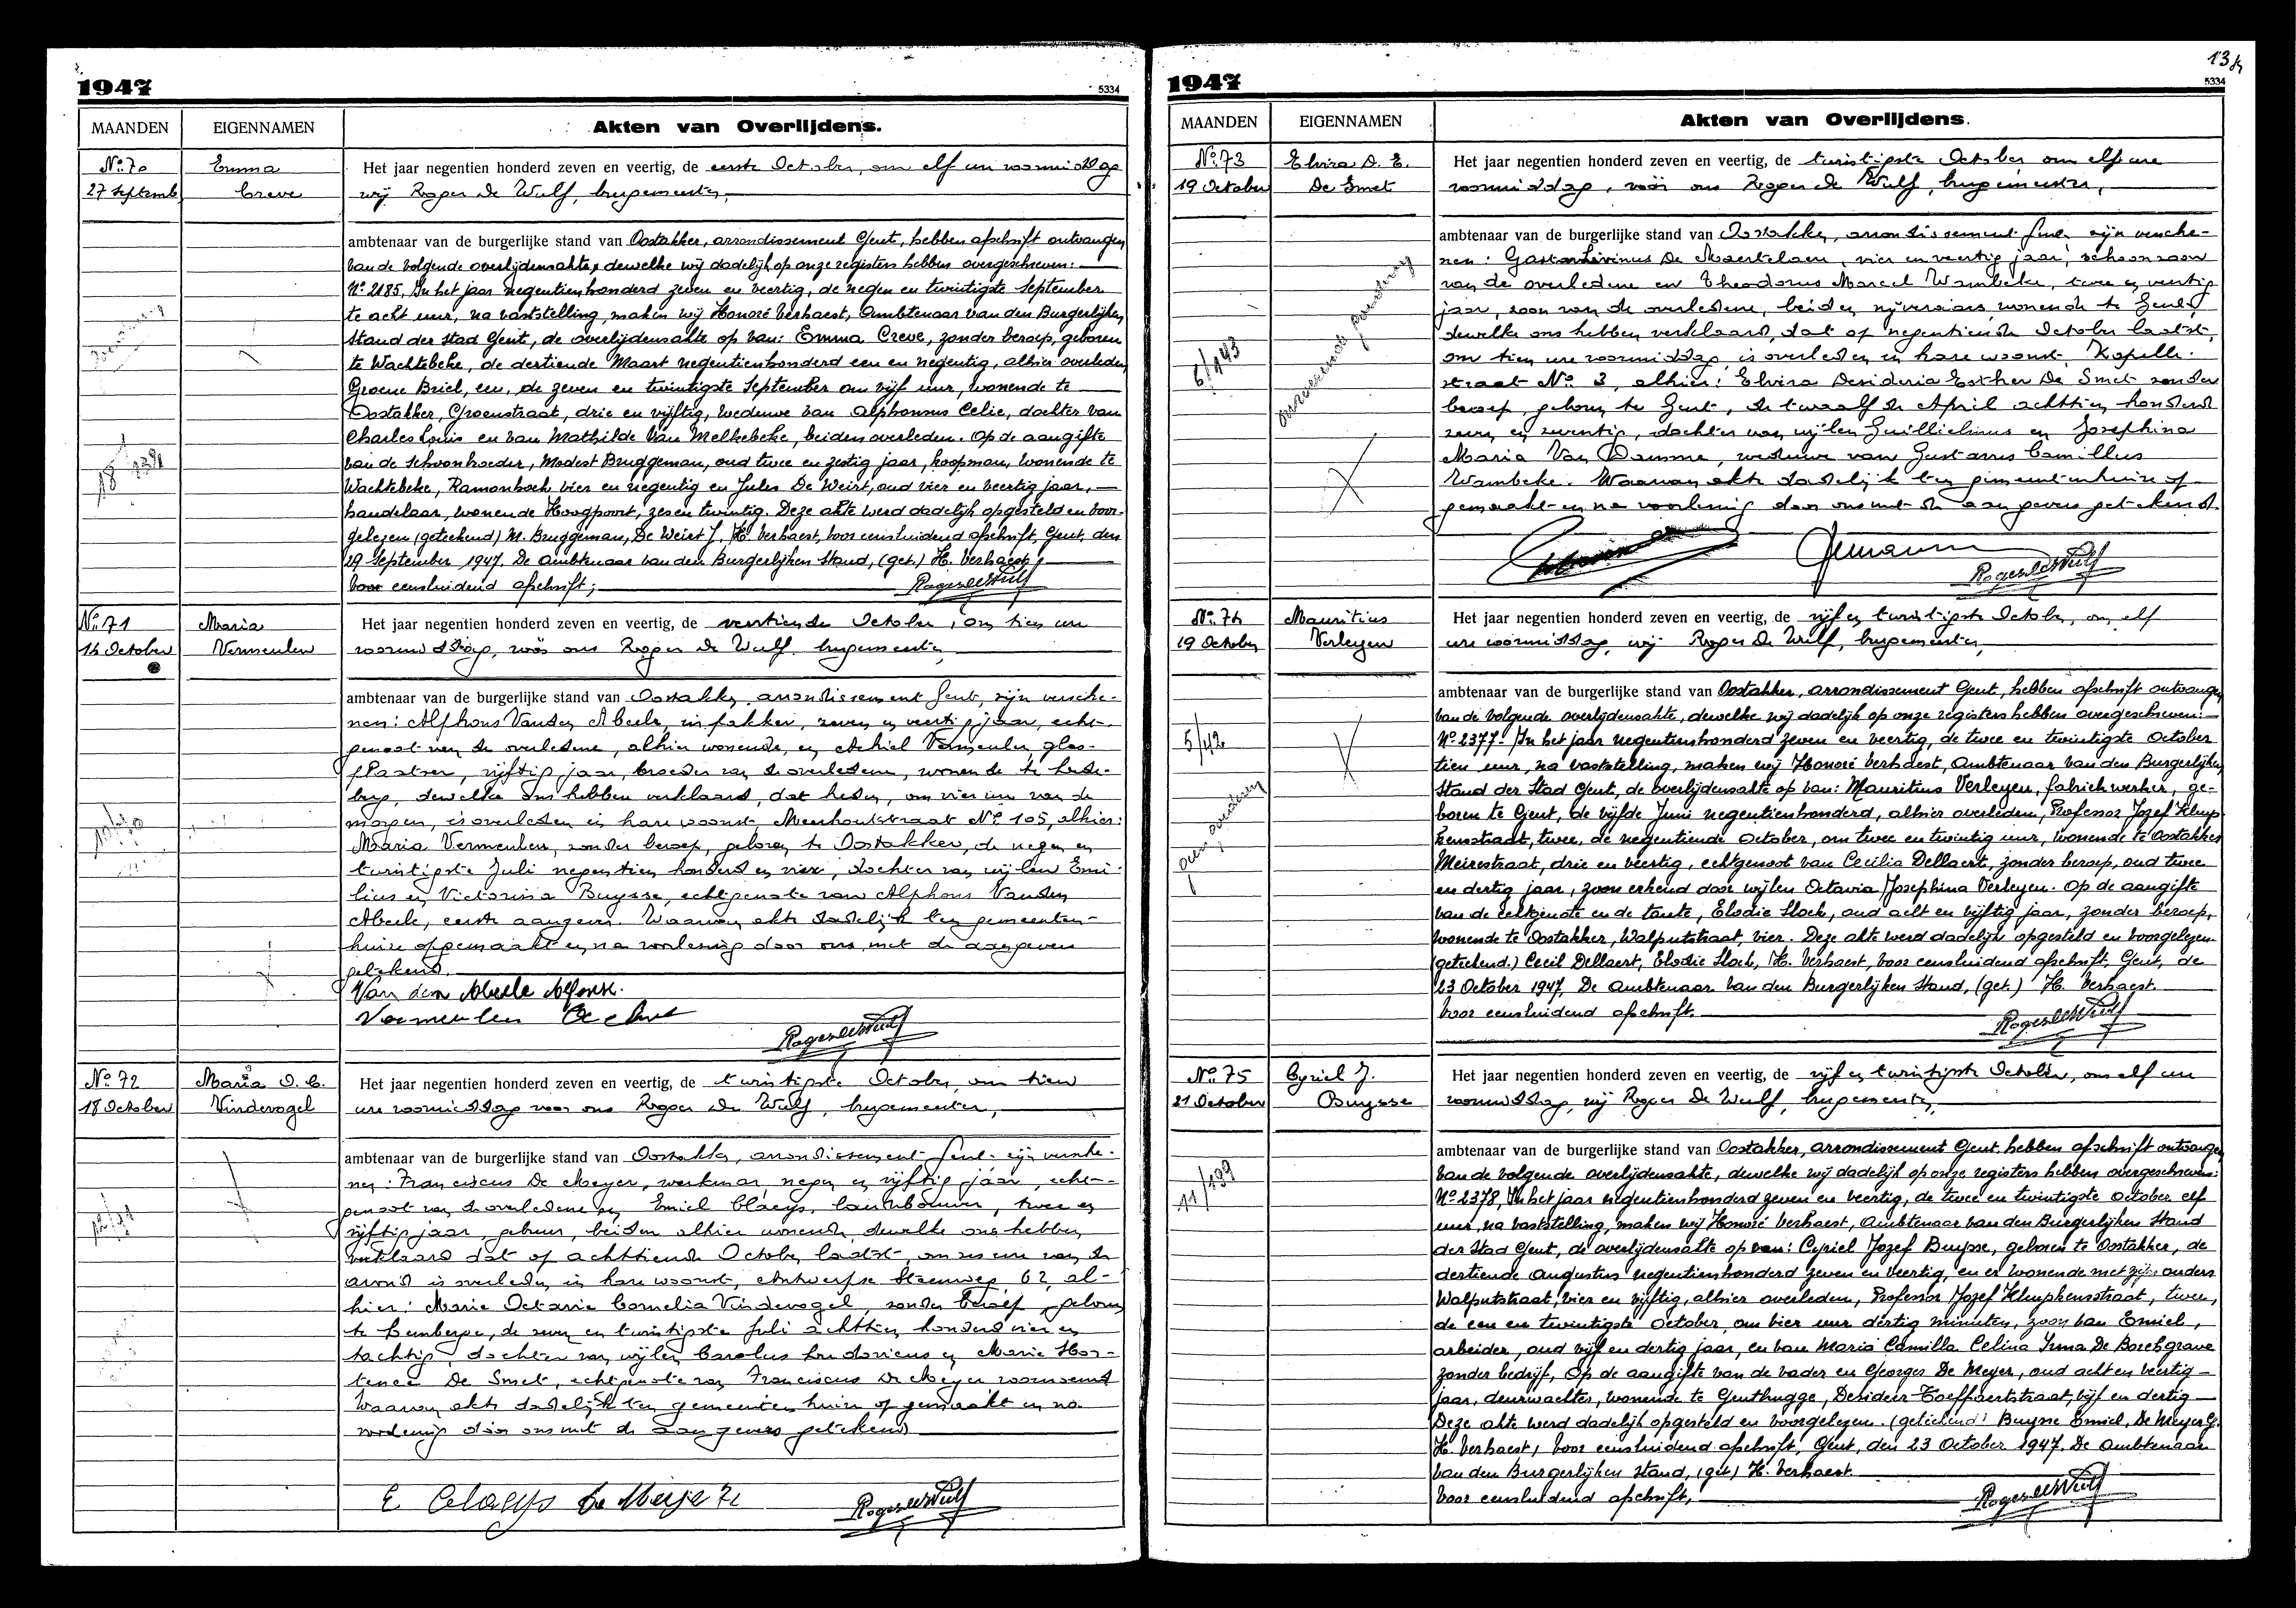 1947
5334
MAANDEN
EIGENNAMEN
Akten van Overlijdens.
Nº 70
27 Septemb
Emma
Creve
Het jaar negentien honderd zeven en veertig, de eerste October, om elf ure voormiddag
wij Roger De Wulf, burgemeester,
ambtenaar van de burgerlijke stand van Oostakker, arrondissement Gent, hebben afschrift ontvangen
van de volgende overlijdensakte, dewelke wij dadelijk op onze registers hebben overgeschreven:
Nº 2185, In het jaar negentienhonderd zeven en veertig, de negen en twintigste September
te acht uur, na vaststelling, maken wij Honoré Verhaest, Ambtenaar van den Burgerlijken
Stand der stad Gent, de overlijdensakte op van: Emma Creve, zonder beroep, geboren
te Wachtebeke, de dertiende Maart negentienhonderd een en negentig, alhier overleden
Groene Briel, een, de zeven en twintigste September om vijf uur, wonende te
Oostakker, Groenstraat, drie en vijftig, weduwe van Alphonsus Celie, dochter van
Charles Louis en van Mathilde Van Melkebeke, beiden overleden. Op de aangifte
van de schoonbroeder, Modest Bruggeman, oud twee en zestig jaar, koopman, wonende te
Wachtebeke, Ramonhoek vier en negentig en Jules De Weirt, oud vier en veertig jaar,
handelaar, wonende Hoogpoort, zes en twintig. Deze akte werd dadelijk opgesteld en voor-
gelezen (geteekend) M. Bruggeman, De Weirt J. H. Verhaest, voor eensluidend afschrift, Gent, den
29 September 1947. De Ambtenaar van den Burgerlijken Stand, (get.) H. Verhaest,
Voor eensluidend afschrift;
Roger De Wulf
Nº 71
14 October
Maria
Vermeulen
Het jaar negentien honderd zeven en veertig, de veertiende October, om tien ure
voormiddag, vóór ons Roger De Wulf, burgemeester,
ambtenaar van de burgerlijke stand van Oostakker, arrondissement Gent, zijn versche-
nen: Alphons Vanden Abeele, inpakker, zeven en veertig jaar, echt-
genoot van de overledene, alhier wonende, en Achiel Vermeulen, glas-
plaatser, vijftig jaar, broeder van de overledene, wonende te Lede-
berg, dewelke ons hebben verklaard, dat heden, om vier ure van de
morgen, is overleden in hare woonst, Meerhoutstraat Nº 105, alhier:
Maria Vermeulen, zonder beroep, geboren te Oostakker, de negen en
twintigste Juli negentien honderd en vier, dochter van wijlen Emi-
lius en Victorina Buysse, echtgenote van Alphons Vanden
Abeele, eerste aangever. Waarvan akte dadelijk ten gemeenten-
huize opgemaakt en na voorlezing door ons met de aangevers
getekend.
Van den Abeele Alfons.
Vermeulen Achiel
Roger De Wulf
Nº 72
18 October
Maria O. C.
Vindevogel
Het jaar negentien honderd zeven en veertig, de twintigste October, om tien
ure voormiddag voor ons Roger De Wulf, burgemeester,
ambtenaar van de burgerlijke stand van Oostakker, arrondissement Gent zijn versche-
nen: Franciscus De Meyer, werkman, negen en vijftig jaar, echt-
genoot van de overledene en Emiel Claeys, landbouwer, twee en
vijftig jaar, gebuur, beiden alhier wonende, dewelke ons hebben
verklaard dat op achttiende October laatst, om zes ure van de
avond is overleden in hare woonst, Antwerpse Steenweg, 62, al-
hier: Marie Octavie Cornelia Vindevogel, zonder beroep, geboren
te Lemberge, de zeven en twintigste Juli achttien honderd vier en
tachtig, dochter van wijlen Carolus Ludovicus en Marie Hor-
tence De Smet, echtgenote van Franciscus De Meyer voornoemd
Waarvan akte dadelijk ten gemeentenhuize opgemaakt en na
voorlezing door ons met de aangevers getekend
E Claeys De Meyer
Roger De Wulf
1947
5334
MAANDEN
EIGENNAMEN
Akten van Overlijdens.
Nº 73
19 October
6/143
Elvira D. E.
De Smet
Het jaar negentien honderd zeven en veertig, de twintigste October om elf ure
voormiddag, vóór ons Roger De Wulf, burgemeester,
ambtenaar van de burgerlijke stand van Oostakker, arrondissement Gent, zijn versche-
nen: Gaston Livinus De Maertelaere, vier en veertig jaar, schoonzoon
van de overledene en Theodorus Marcel Wambeke, twee en veertig
jaar, zoon van de overledene, beiden nijveraars, wonende te Gent,
dewelke ons hebben verklaard, dat op negentiende October laatst,
om tien ure voormiddag, is overleden in hare woonst Kapelle-
straat Nº 3, alhier: Elvira Desideria Esther De Smet zonder
beroep, geboren te Gent, de twaalfde April achttien honderd
zeven en zeventig, dochter van wijlen Guillielmus en Josephina
Maria Van Damme, weduwe van Gustavus Camillus
Wambeke. Waarvan akte dadelijk ten gemeentenhuize op-
gemaakt en na voorlezing door ons met de aangevers getekend.
Roger De Wulf
Nº 74
19 October
5/42
Mauritius
Verleyen
Het jaar negentien honderd zeven en veertig, de vijf en twintigste October, om elf
ure voormiddag, wij Roger De Wulf, burgemeester,
ambtenaar van de burgerlijke stand van Oostakker, arrondissement Gent, hebben afschrift ontvangen
van de volgende overlijdensakte, dewelke wij dadelijk op onze registers hebben overgeschreven:
Nº 2377- In het jaar negentienhonderd zeven en veertig, de twee en twintigste October
tien uur, na vaststelling, maken wij Honoré Verhaest, Ambtenaar van den Burgerlijken
Stand der Stad Gent, de overlijdensakte op van: Mauritius Verleyen, fabriekwerker, ge-
boren te Gent, de vijfde Juni negentienhonderd, alhier overleden, Professor Jozef Kluys-
kensstraat, twee, de negentiende October, om twee en twintig uur, wonende te Oostakker
Meirestraat, drie en veertig, echtgenoot van Cecilia Dellaert, zonder beroep, oud twee
en dertig jaar, zoon erkend door wijlen Octavia Josephina Verleyen. Op de aangifte
van de echtgenote en de tante, Elodie Slock, oud acht en vijftig jaar, zonder beroep,
wonende te Oostakker, Walputstraat, vier. Deze akte werd dadelijk opgesteld en voorgelezen.
(geteekend.) Cecil Dellaert, Elodie Slock, H. Verhaest, voor eensluidend afschrift, Gent, de
23 October 1947, De Ambtenaar van den Burgerlijken Stand, (get.) H. Verhaest.
Voor eensluidend afschrift.
Roger De Wulf
Nº 75
21 October
11/139
Cyriel J.
Buysse
Het jaar negentien honderd zeven en veertig, de vijf en twintigste October, om elf ure
voormiddag, wij Roger De Wulf, burgemeester,
ambtenaar van de burgerlijke stand van Oostakker, arrondissement Gent, hebben afschrift ontvangen
van de volgende overlijdensakte, dewelke wij dadelijk op onze registers hebben overgeschreven:
Nº 2378, In het jaar negentienhonderd zeven en veertig, de twee en twintigste October elf
uur, na vaststelling, maken wij Honoré Verhaest, Ambtenaar van den Burgerlijken Stand
der Stad Gent, de overlijdensakte op van: Cyriel Jozef Buysse, geboren te Oostakker, de
dertiende Augustus negentienhonderd zeven en veertig, en er wonende met zijn ouders
Walputstraat, vier en vijftig, alhier overleden, Professor Jozef Kluyskensstraat, twee,
de een en twintigste October, om vier uur dertig minuten, zoon van Emiel,
arbeider, oud vijf en dertig jaar, en van Maria Camilla Celina Irma De Borchgrave
zonder bedrijf, Op de aangifte van de vader en Georges De Meyer, oud acht en veertig
jaar, deurwachter, wonende te Gentbrugge, Desideer Toeffaertstraat, vijf en dertig
Deze akte werd dadelijk opgesteld en voorgelezen. (geteekend) Buysse Emiel, De Meyer G.
H. Verhaest, voor eensluidend afschrift, Gent, den 23 October 1947. De Ambtenaar
van den Burgerlijken Stand, (get.) H. Verhaest.
Voor eensluidend afschrift,
Roger De Wulf